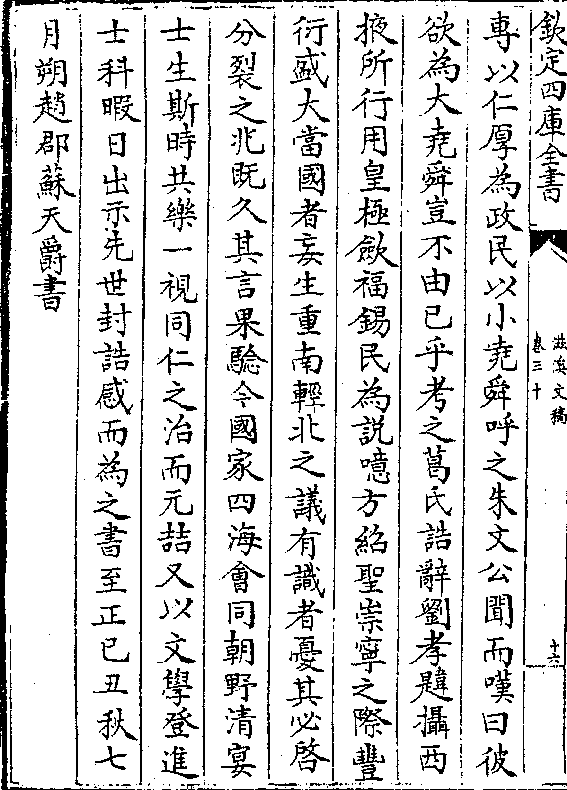 欽定四庫全書
滋溪文稿
卷三十
十六
專以仁厚為政民以小堯舜呼之朱文公聞而嘆曰彼
欲為大堯舜豈不由已乎考之葛氏誥辭劉孝韙攝西
掖所行用皇極斂福錫民為説噫方紹聖崇寧之際豐
衍盛大當國者妄生重南輕北之議有識者憂其必啓
分裂之兆既久其言果驗今國家四海會同朝野清宴
士生斯時共樂一視同仁之治而元喆又以文學登進
士科暇日出示先世封誥感而為之書至正已丑秋七
月朔趙郡蘇天爵書